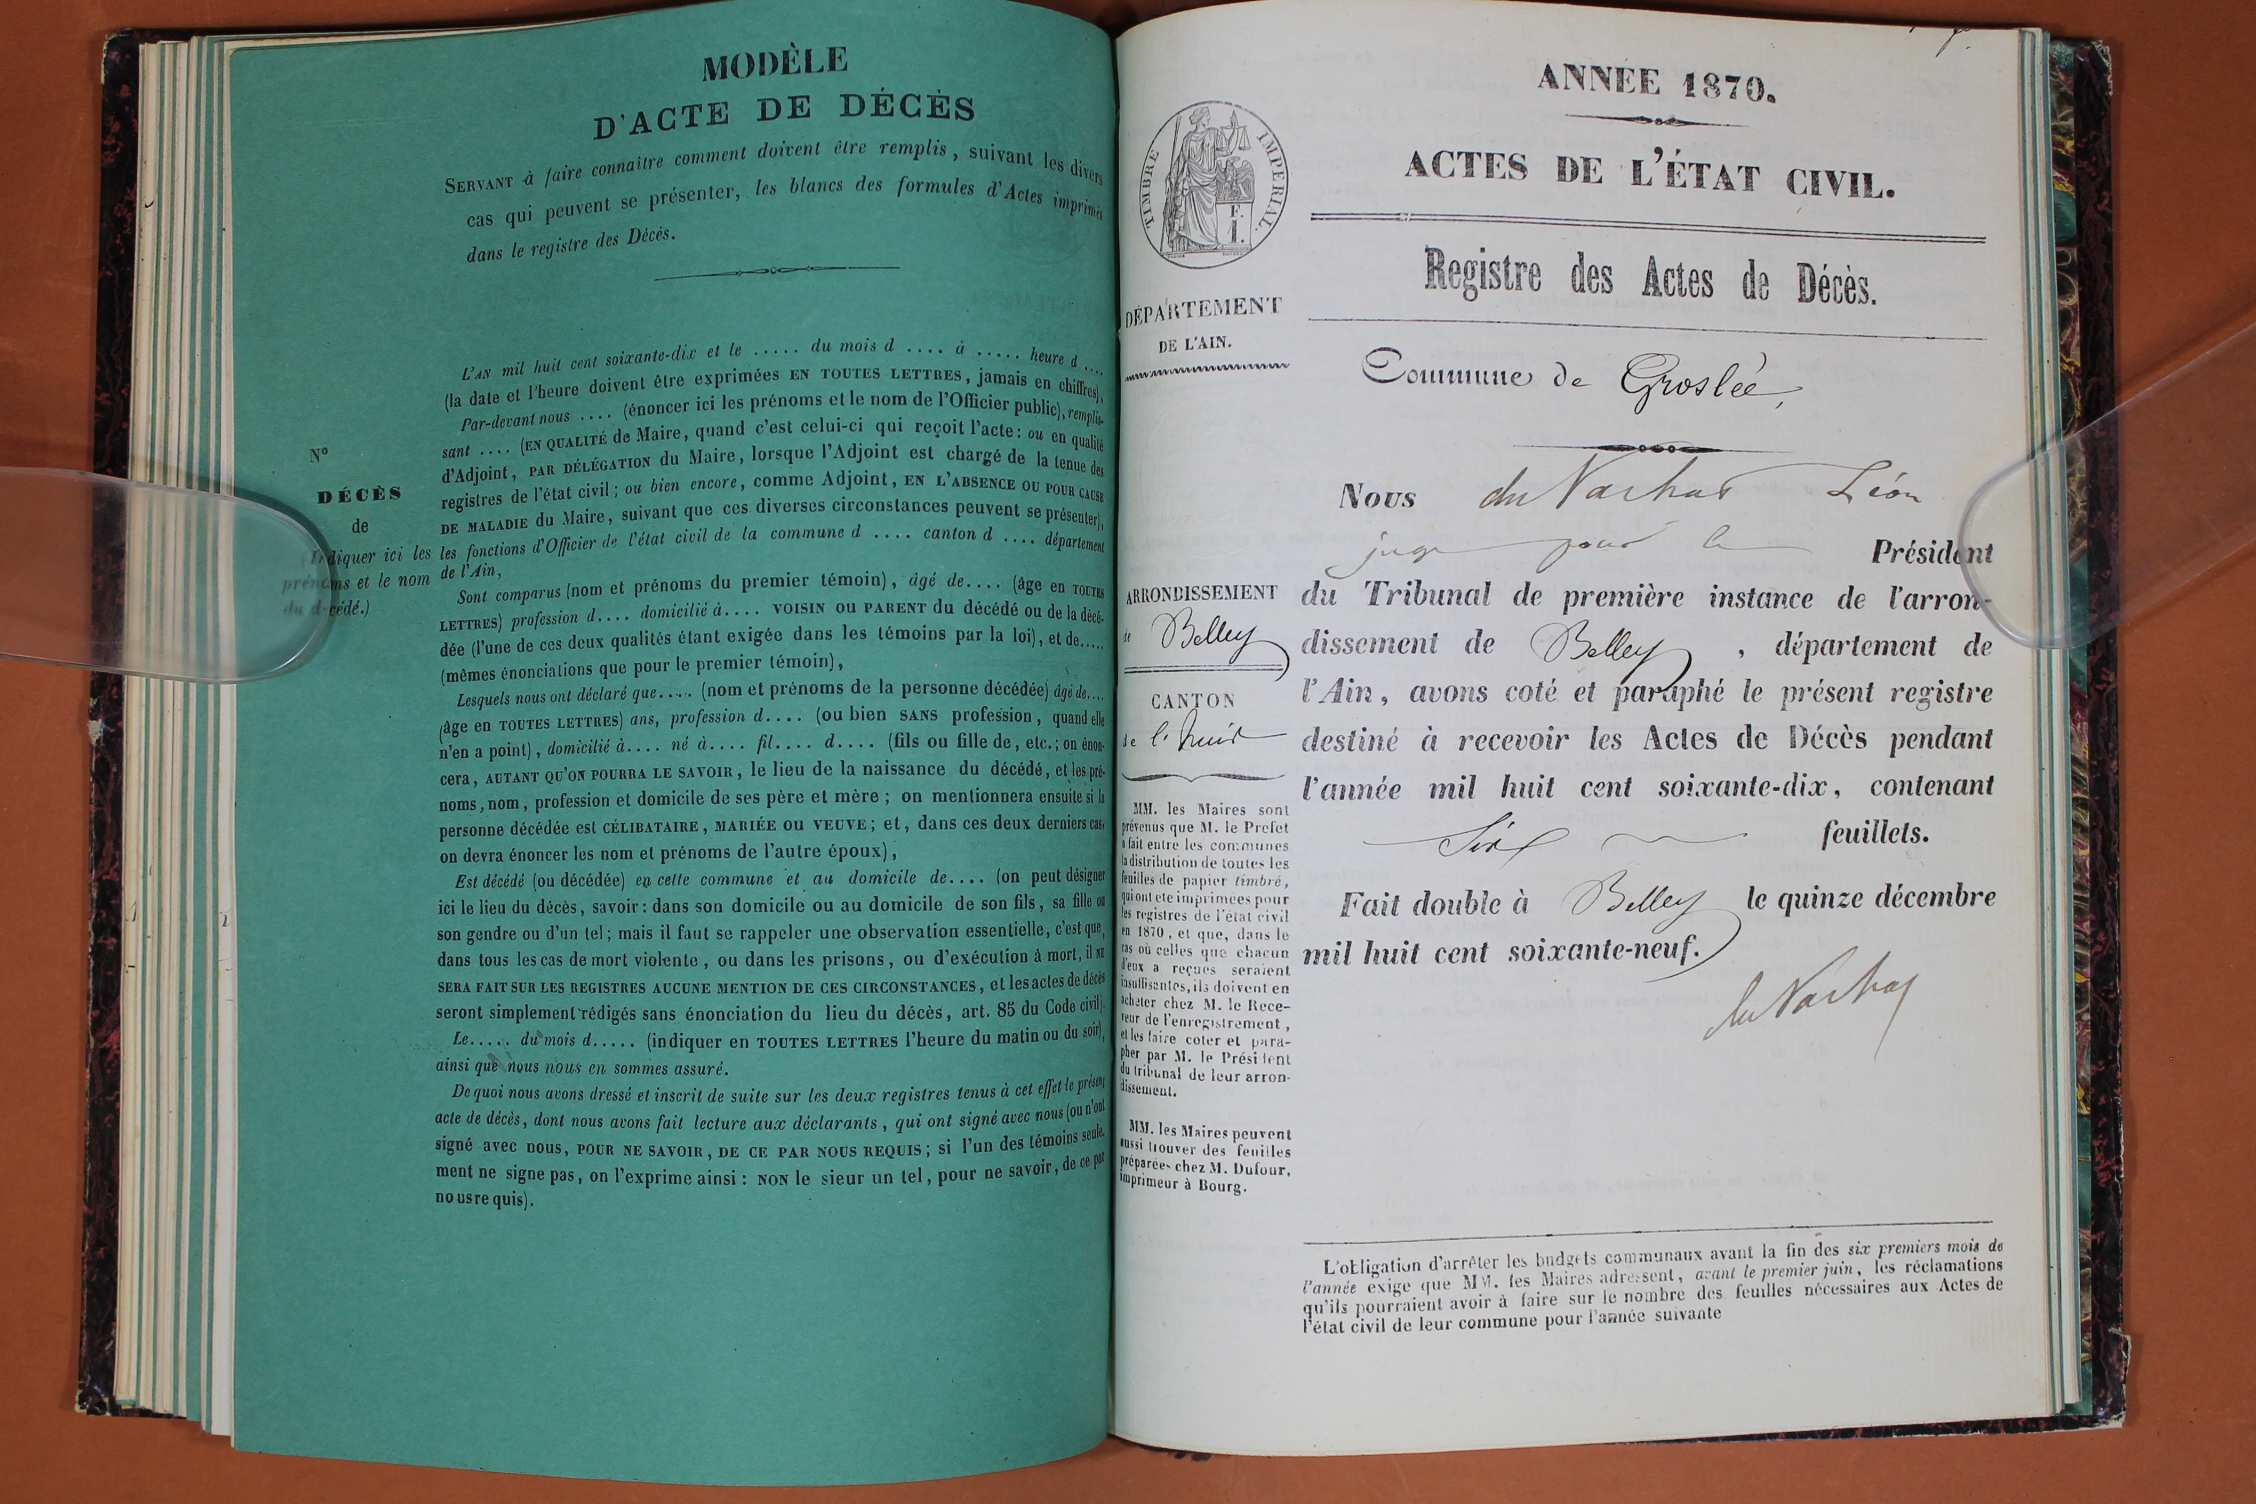 MODÈLE
D'ACTE DE DÉCÈS
SERVANT à faire connaître comment doivent être remplis, suivant les divers
cas qui peuvent se présenter, les blancs des formules d'Actes imprimés
dans le registre des Décès.
L'AN mil huit cent soixante-dix et le ..... du mois d .... à ..... heure d ....
(la date et l'heure doivent être exprimées EN TOUTES LETTRES, jamais en chiffres),
Par-devant nous .... (énoncer ici les prénoms et le nom de l'Officier public), remplis-
sant .... (EN QUALITÉ de Maire, quand c'est celui-ci qui reçoit l'acte: ou en qualité
d'Adjoint, PAR DÉLÉGATION du Maire, lorsque l'Adjoint est chargé de la tenue des
registres de l'état civil; ou bien encore, comme Adjoint, EN L'ABSENCE OU POUR CAUSE
DE MALADIE du Maire, suivant que ces diverses circonstances peuvent se présenter),
les fonctions d'Officier de l'état civil de la commune d .... canton d .... département
de l'Ain,
N°
DÉCÈS
de
(Indiquer ici les
prénoms et le nom
du décédé.)
Sont comparus (nom et prénoms du premier témoin), âgé de.... (âge en TOUTES
LETTRES) profession d.... domicilié à.... VOISIN OU PARENT du décédé ou de la décé-
dée (l'une de ces deux qualités étant exigée dans les témoins par la loi), et de.....
(mêmes énonciations que pour le premier témoin),
Lesquels nous ont déclaré que..... (nom et prénoms de la personne décédée) âgé de....
(âge en TOUTES LETTRES) ans, profession d.... (ou bien SANS profession, quand elle
n'en a point), domicilié à.... né à.... fil.... d.... (fils ou fille de, etc.; on énon-
cera, AUTANT QU'ON POURRA LE SAVOIR, le lieu de la naissance du décédé, et les pré-
noms, nom, profession et domicile de ses père et mère; on mentionnera ensuite si la
personne décédée est CÉLIBATAIRE, MARIÉE OU VEUVE; et, dans ces deux derniers cas,
on devra énoncer les nom et prénoms de l'autre époux),
Est décédé (ou décédée) en cette commune et au domicile de.... (on peut désigner
ici le lieu du décès, savoir: dans son domicile ou au domicile de son fils, sa fille ou
son gendre ou d'un tel; mais il faut se rappeler une observation essentielle, c'est que,
dans tous les cas de mort violente, ou dans les prisons, ou d'exécution à mort, il NE
SERA FAIT SUR LES REGISTRES AUCUNE MENTION DE CES CIRCONSTANCES, et les actes de décès
seront simplement rédigés sans énonciation du lieu du décès, art. 85 du Code civil).
Le..... du mois d..... (indiquer en TOUTES LETTRES l'heure du matin ou du soir),
ainsi que nous nous en sommes assuré.
De quoi nous avons dressé et inscrit de suite sur les deux registres tenus à cet effet le présent
acte de décès, dont nous avons fait lecture aux déclarants, qui ont signé avec nous (ou n'ont
signé avec nous, POUR NE SAVOIR, DE CE PAR NOUS REQUIS; si l'un des témoins seule-
ment ne signe pas, on l'exprime ainsi: NON le sieur un tel, pour ne savoir, de ce par
no us re quis).
ANNÉE 1870.
ACTES DE L'ÉTAT CIVIL.
TIMBRE IMPÉRIAL.
F.
1.
Registre des Actes de Décès.
DÉPARTEMENT
DE L'AIN.
Commune de Groslée,
Nous du Nachat Léon
juge pour le Président
du Tribunal de première instance de l'arron-
dissement de Belley, département de
l'Ain, avons coté et paraphé le présent registre
destiné à recevoir les Actes de Décès pendant
l'année mil huit cent soixante-dix, contenant
Six feuillets.
Fait double à Belley le quinze décembre
mil huit cent soixante-neuf.
du Nachat
ARRONDISSEMENT
de Belley
CANTON
de l'huis
MM. les Maires sont
prévenus que M. le Préfet
a fait entre les communes
la distribution de toutes les
feuilles de papier timbré,
qui ont été imprimées pour
les registres de l'état civil
en 1870, et que, dans le
cas où celles que chacun
d'eux a reçues seraient
insuffisantes, ils doivent en
acheter chez M. le Rece-
veur de l'enregistrement,
et les faire coter et para-
pher par M. le Président
du tribunal de leur arron-
dissement.
MM. les Maires peuvent
aussi trouver des feuilles
préparées chez M. Dufour,
imprimeur à Bourg.
L'obligation d'arrêter les budgets communaux avant la fin des six premiers mois de
l'année exige que MM. les Maires adressent, avant le premier juin, les réclamations
qu'ils pourraient avoir à faire sur le nombre des feuilles nécessaires aux Actes de
l'état civil de leur commune pour l'année suivante